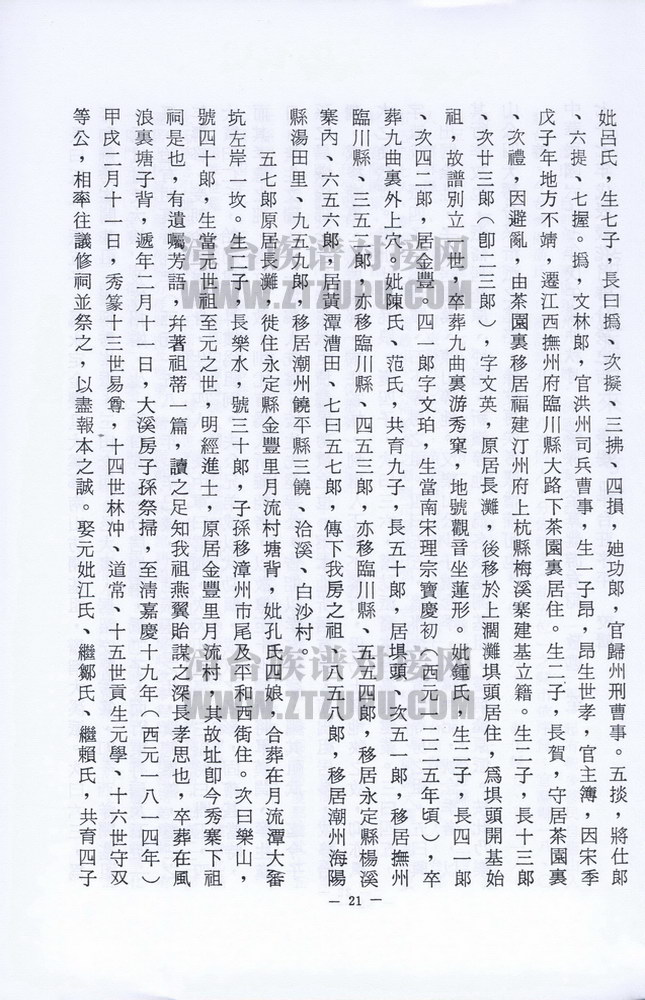 妣呂氏，生七子，長曰撝、次擬、三拂、四損，廸功郎，官歸州刑曹事。五掞，將仕郎
、六提、七握。撝，文林郎，官洪州司兵曹事，生一子昂，昂生世孝，官主簿，因宋季
戊子年地方不婧，遷江西撫州府臨川縣大路下茶園裏居住。生二子，長賀，守居茶園裏
、次禮，因避亂，由茶園裏移居福建汀州府上杭縣梅溪寨建基立籍。生二子，長十三郎
、次廿三郎（卽二三郎），字文英，原居長灘，後移於上濶灘埧頭居住，爲埧頭開基始
祖，故譜別立一世，卒葬九曲裏游秀窠，地號觀音坐蓮形。妣鍾氏，生二子，長四一郎
、次四二郎，居金豐。四一郎字文珀，生當南宋理宗寶慶初（西元一二二五年頃），卒
葬九曲裏外上穴。妣陳氏、范氏，共育九子，長五十郎，居埧頭、次五一郎，移居撫州
臨川縣、三五二郎，亦移臨川縣、四五三郎，亦移臨川縣、五五四郎，移居永定縣楊溪
寨內、六五六郎，居黃潭漕田、七曰五七郎，傳下我房之祖、八五八郎，移居潮州海陽
縣湯田里、九五九郎，移居潮州饒平縣三饒、洽溪、白沙村。
五七郎原居長灘，徙住永定縣金豐里月流村塘背，妣孔氏四娘，合葬在月流潭大畲
坑左岸一坟。生二子，長樂水，號三十郎，子孫移漳州市尾及平和西街住。次曰樂山，
號四十郎，生當元世祖至元之世，明經進士，原居金豐里月流村，其故址卽今秀寨下祖
祠是也，有遺囑芳語，幷著祖蒂一篇，讀之足知我祖燕翼貽謀之深長孝思也，卒葬在風
浪裏塘子背，遞年二月十一日，大溪房子孫祭掃，至淸嘉慶十九年（西元一八一四年）
甲戌二月十一日，秀篆十三世易尊，十四世林冲、道常、十五世貢生元學、十六世守双
等公，相率往議修祠並祭之，以盡報本之誠。娶元妣江氏、繼鄒氏、繼賴氏，共育四子
— 21 —
漳台族谱对接网
WWW.ZTZUPU.COM
漳台族谱对接网
WWW.ZTZUPU.COM